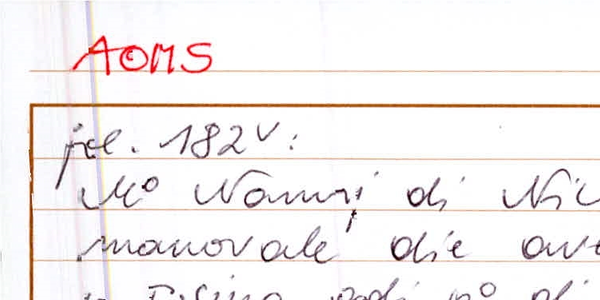 AOMS
fol. 182v:
Mo Nanni di Nic
manovale die ave